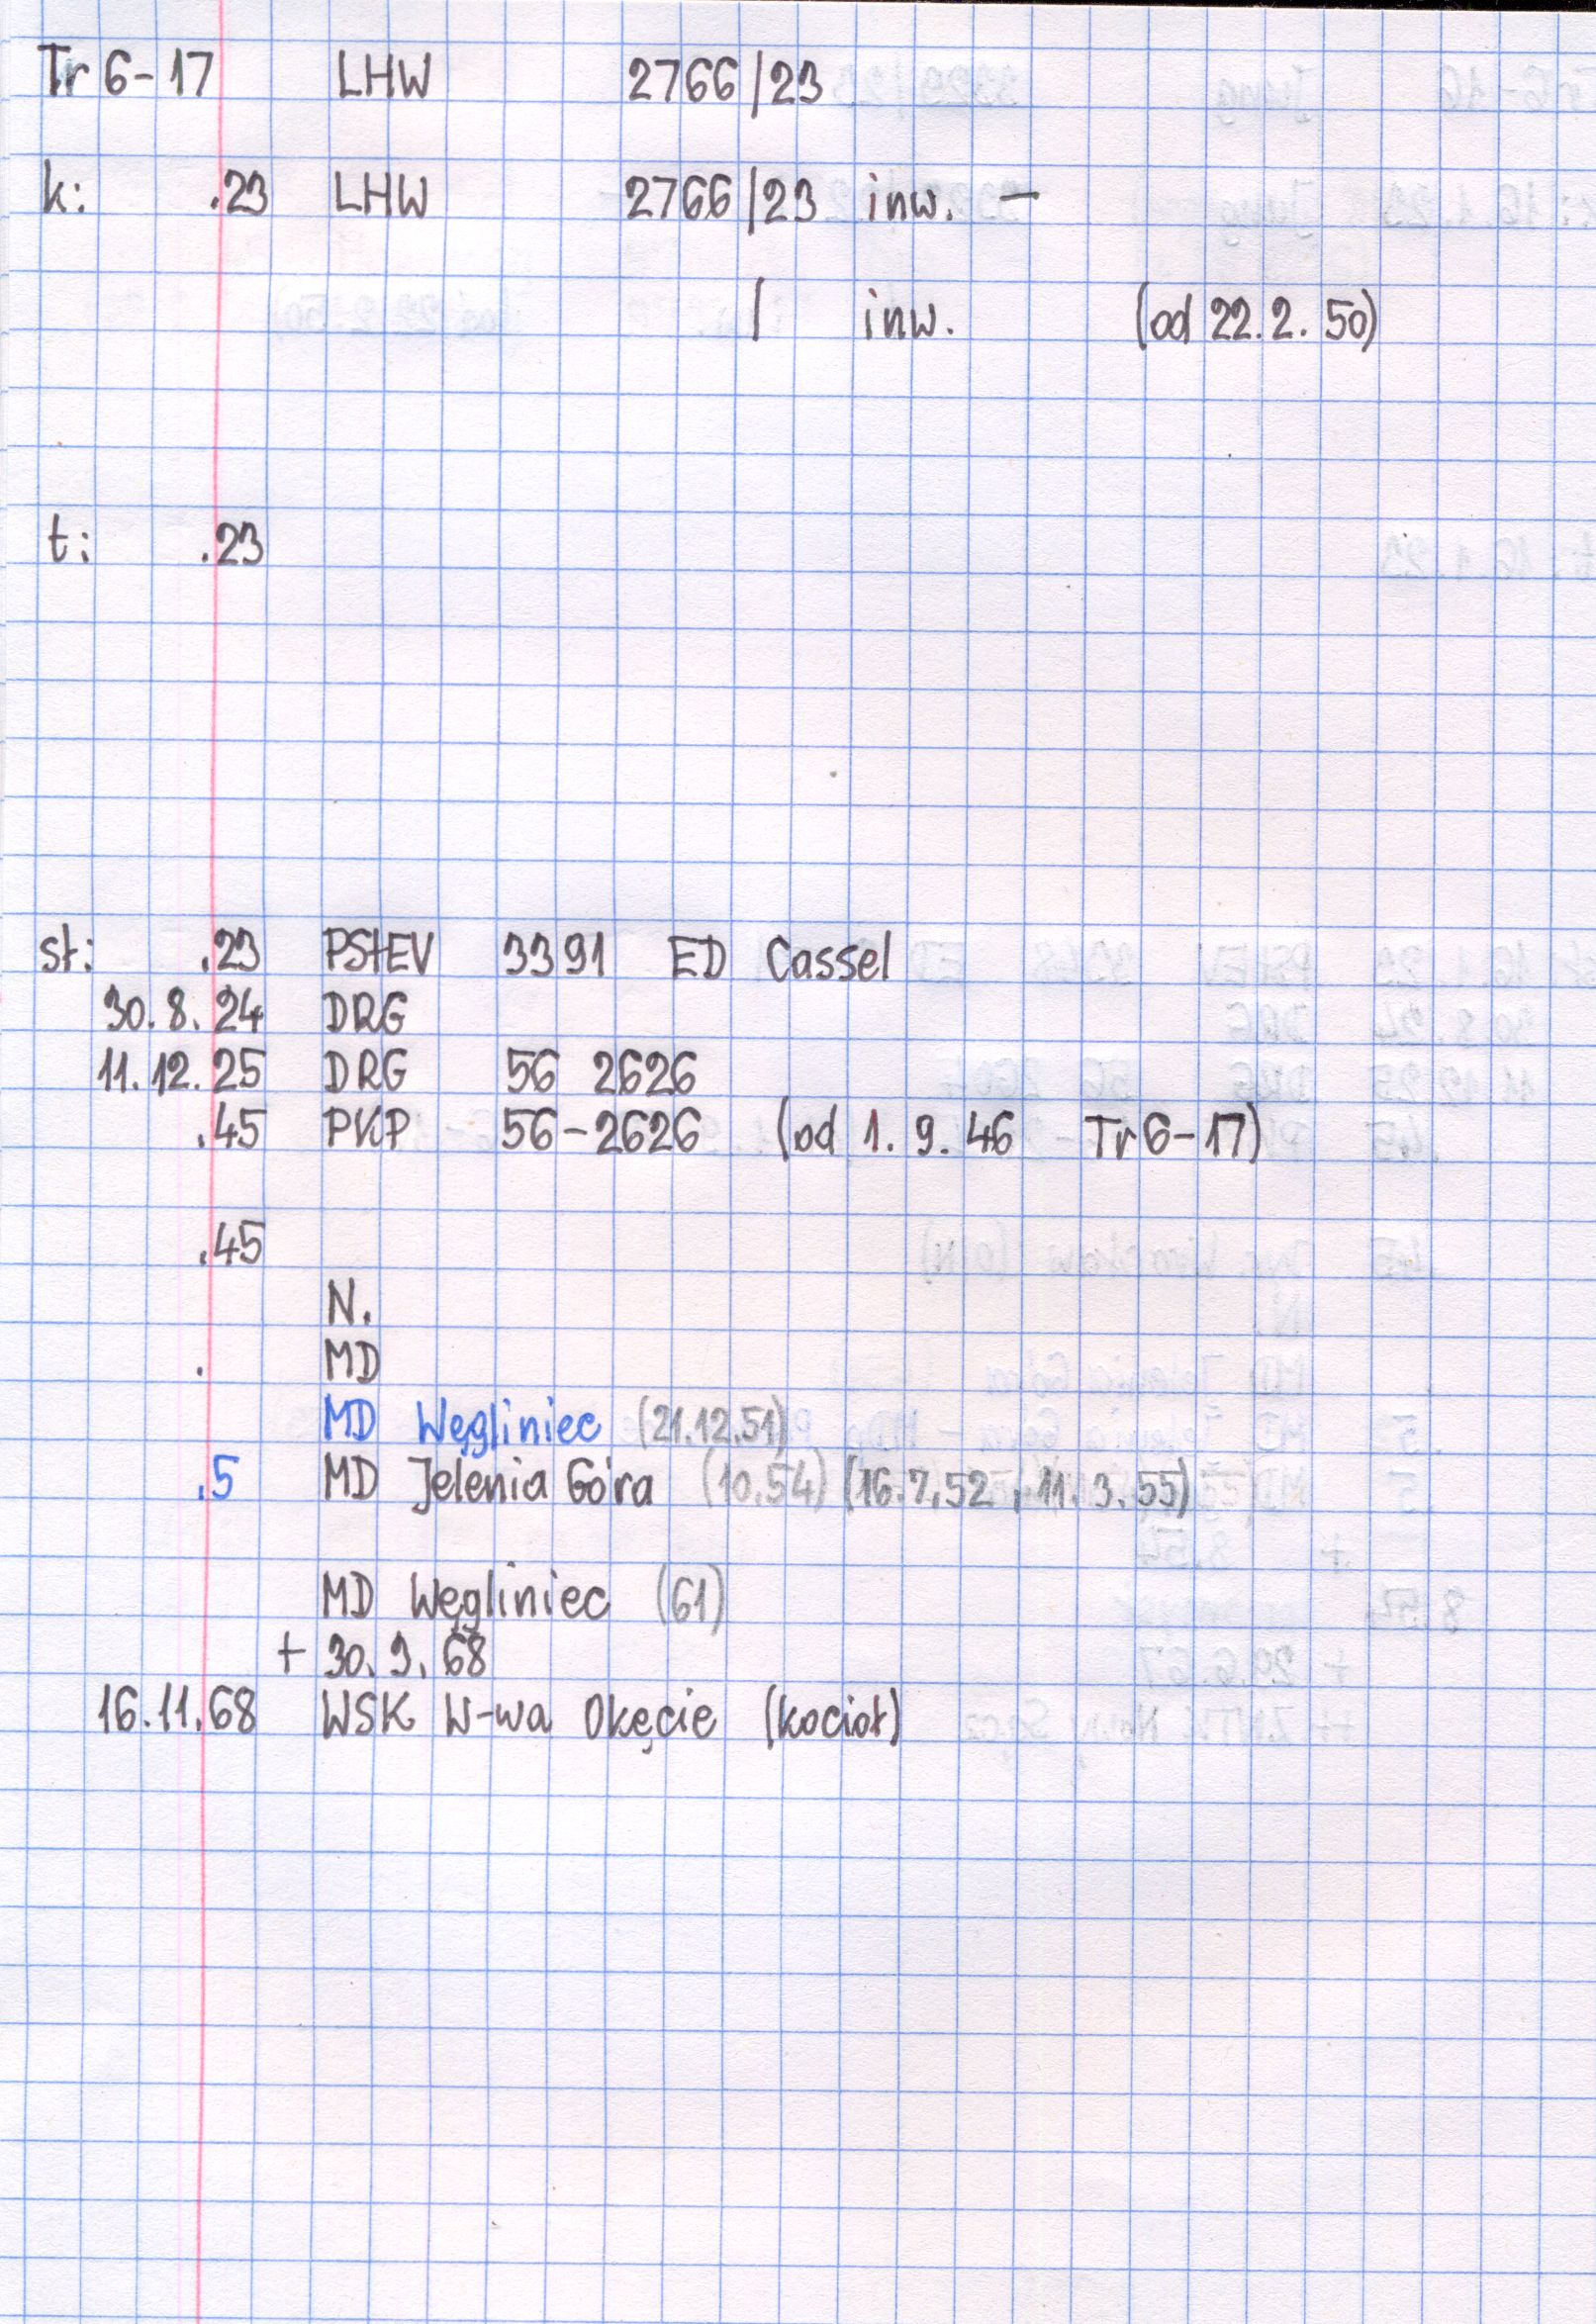 Tr 6-17 LHW 2766/23
k: .23 LHW 2766/23 inw. -
/ inw. (od 22.2.50)
t: .23
st: .23 PStEV 3391 ED Cassel
30.8.24 DRG
11.12.25 DRG 56 2626
.45 PKP 56-2626 (od 1.9.46 Tr6-17)
.45
N.
. MD
MD Węgliniec (21.12.51)
.5 MD Jelenia Góra (10.54) (16.7.52, 11.3.55)
MD Węgliniec (61)
+ 30.9.68
16.11.68 WSK W-wa Okęcie (kocioł)